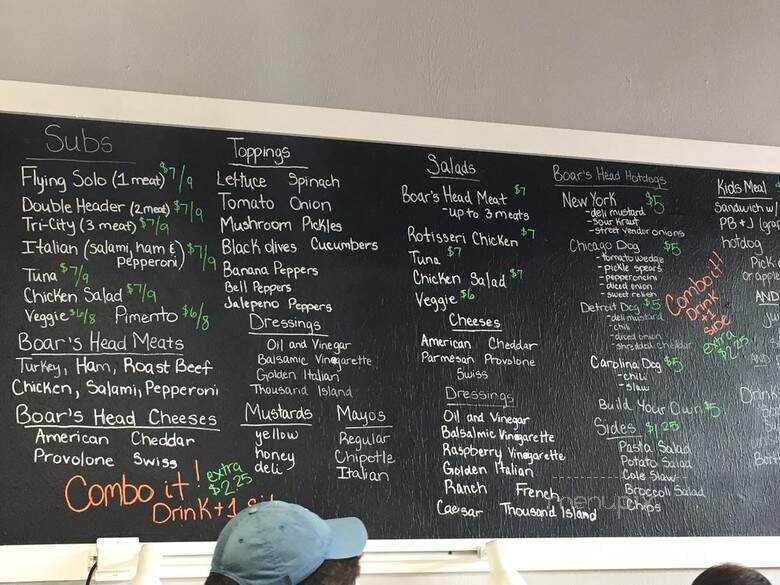 Subs
Flying Solo (1 meat) $7/9
Double Header (2 meat) $7/9
Tri-City (3 meat) $7/9
Italian (salami, ham & pepperoni) $7/9
Tuna $7/9
Chicken Salad $7/9
Veggie $6/8 Pimento $6/8
Boar's Head Meats
Turkey, Ham, Roast Beef
Chicken, Salami, Pepperoni
Boar's Head Cheeses
American Cheddar
Provolone Swiss
Combo it! extra $2.25
Drink + 1
Toppings
Lettuce Spinach
Tomato Onion
Mushroom Pickles
Black olives Cucumbers
Banana Peppers
Bell Peppers
Jalepeno Peppers
Dressings
Oil and Vinegar
Balsamic Vinegarette
Golden Italian
Thousand Island
Mustards
yellow
honey
deli
Mayos
Regular
Chipotle
Italian
Salads
Boar's Head Meat $7
-up to 3 meats
Rotisseri Chicken $7
Tuna $7
Chicken Salad $7
Veggie $6
Cheeses
American Cheddar
Parmesan Provolone
Swiss
Dressings
Oil and Vinegar
Balsalmic Vinegarette
Raspberry Vinegarette
Golden Italian
Ranch French
Caesar Thousand Island
Boar's Head Hotdogs
New York $5
-deli mustard
-sour kraut
-street vendor onions
Chicago Dog $5
-tomato wedge
-pickle spears
-pepperoncini
-diced onion
-sweet relish
Detroit Dog $5
-deli mustard
-chili
-diced onion
-shredded cheddar
Carolina Dog $5
-chili
-slaw
Build Your Own $5
Combo it!!
Drink
+1
side
extra
$2.25
Sides $1.25
Pasta Salad
Potato Salad
Cole Slaw
Broccoli Salad
Chips
Kids Meal
Sandwich w/
PB+J
hotdog
AND